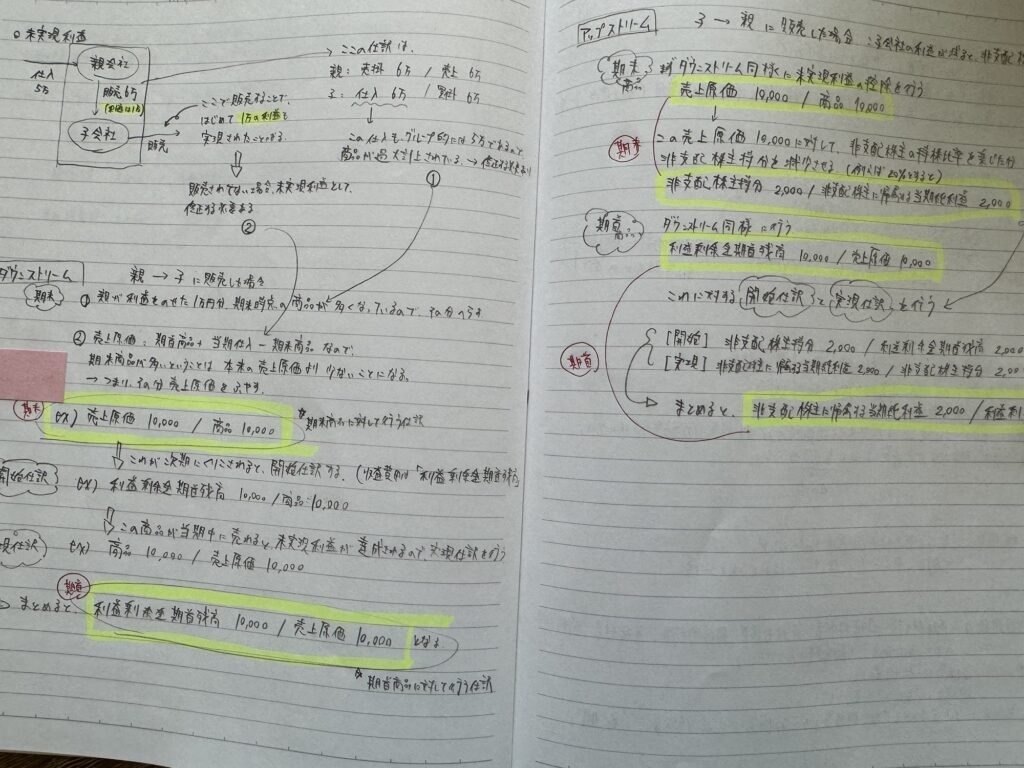 ○ 未実現利益
親会社
仕入
5万
販売 6万
(原価は5万)
子会社
販売
ここで販売することで、
はじめて 1万の利益を
実現されたことになる。
販売されてない場合、未実現利益として、
修正する必要ある
②
→ ここの仕訳は、
親: 売掛 6万 / 売上 6万
子: 仕入 6万 / 買掛 6万
この仕入も、グループ的には 5万であるので
商品が過大計上されている → 修正する必要あり
①
ダウンストリーム 親 → 子 に販売した場合
期末
① 親が利益をのせた1万円分、期末時点の商品が多くなっているので、その分へらす
② 売上原価: 期首商品 + 当期仕入 - 期末商品 なので、
期末商品が多いということは 本来の売上原価より 少ないことになる。
→ つまり、その分 売上原価をふやす。
期末
ex) 売上原価 10,000 / 商品 10,000
期末商品に対して行う仕訳
これが次期にくりこされると、開始仕訳する。(収益費用は「利益剰余金期首残高
開始仕訳
ex) 利益剰余金期首残高 10,000 / 商品 10,000
この商品が当期中に売れると、未実現利益が達成されるので、実現仕訳を行う
現仕訳
ex) 商品 10,000 / 売上原価 10,000
期首
まとめると、 利益剰余金期首残高 10,000 / 売上原価 10,000 となる
期首商品に対して行う仕訳
アップストリーム 子 → 親 に販売した場合 子会社の利益が残ると、非支配株
期末
商品
まずダウンストリーム同様に未実現利益の控除を行う
売上原価 10,000 / 商品 10,000
期末
この売上原価 10,000に対して、非支配株主の持株比率を乗じた分
非支配株主持分を減少させる (例えば20%とすると)
非支配株主持分 2,000 / 非支配株主に帰属する当期純利益 2,000
期首
商品
ダウンストリーム同様に行う
利益剰余金期首残高 10,000 / 売上原価 10,000
これに対する 開始仕訳 と 実現仕訳 を行う
期首
[開始] 非支配株主持分 2,000 / 利益剰余金期首残高 2,00
[実現] 非支配株主に帰属する当期純利益 2,000 / 非支配株主持分 2,00
まとめると、 非支配株主に帰属する当期純利益 2,000 / 利益剰